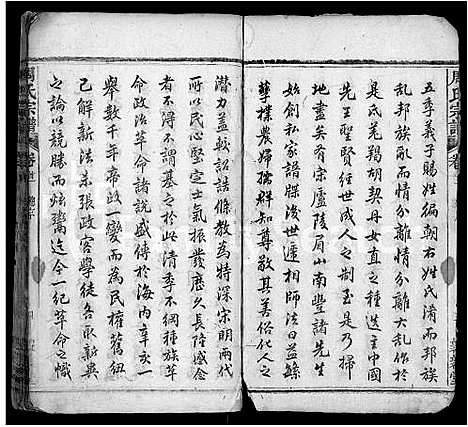 五季義子賜姓編朝右姓氏淆而邦族
亂邦族亂而情分離情分離大亂作於
是氐羌羯胡契丹女直之種迭主中國
先王聖賢經世成人之制于是乃
地盡矣有宋廬陵眉山南豐諸先生
始創私家譜牒後世遞相師法曰益鯀
孽樸農婦孺群知尊敬其善俗化人之
潛力益較詔誥條教為特深宋明兩代
所以民心堅宣士氣振發歷久長隆感念
者不得不謂基之於此清季不綱種族革
命政治革命諸說盛傳於海內辛亥一
舉數千年帝政一變而為民權舊紐
已解新法未張政客學徒各取新異
之論以競勝而炫鬻迄今一紀革命之幟
周氏宗譜
卷
周氏宗譜
卷